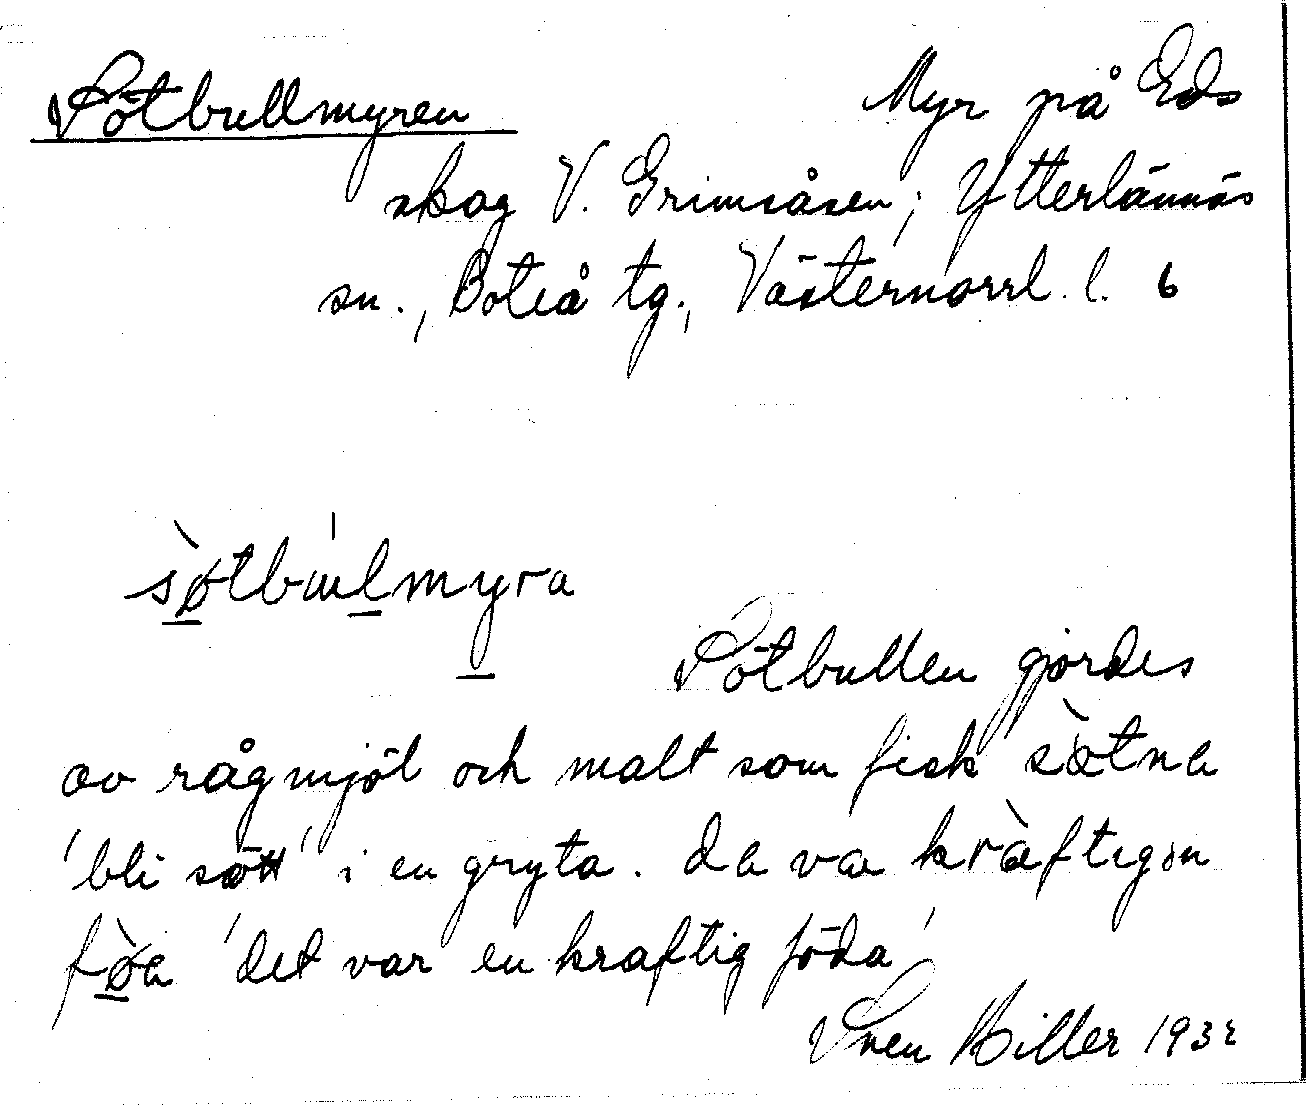 Sötbullmyren Myr på Eds
skog V. Grimsåsen; Ytterlännäs
sn., Boteå tg., Västernorrl. l. 6
sø̀tbulmyra
Sötbullen gjordes
av rågmjöl och malt som fick sœ̀tna
'bli sött' i en gryta. da va kræ̀ftigən
fø̀a 'det var en kraftig föda'
Sven Hiller 1932